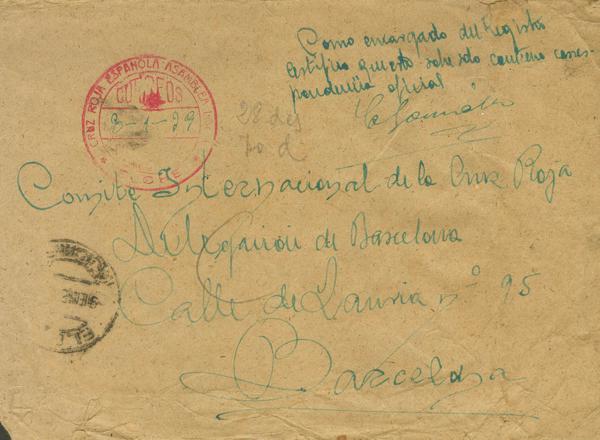 Como encargado del Registro
certifico que este sobre solo contiene corres-
pondencia oficial
CRUZ ROJA ESPAÑOLA ASAMBLEA
CORREOS
3-1-39
28 des
Comite Internacional de la Cruz Roja
Delegacion de Barcelona
Calle de Lauria nº 95
Barcelona